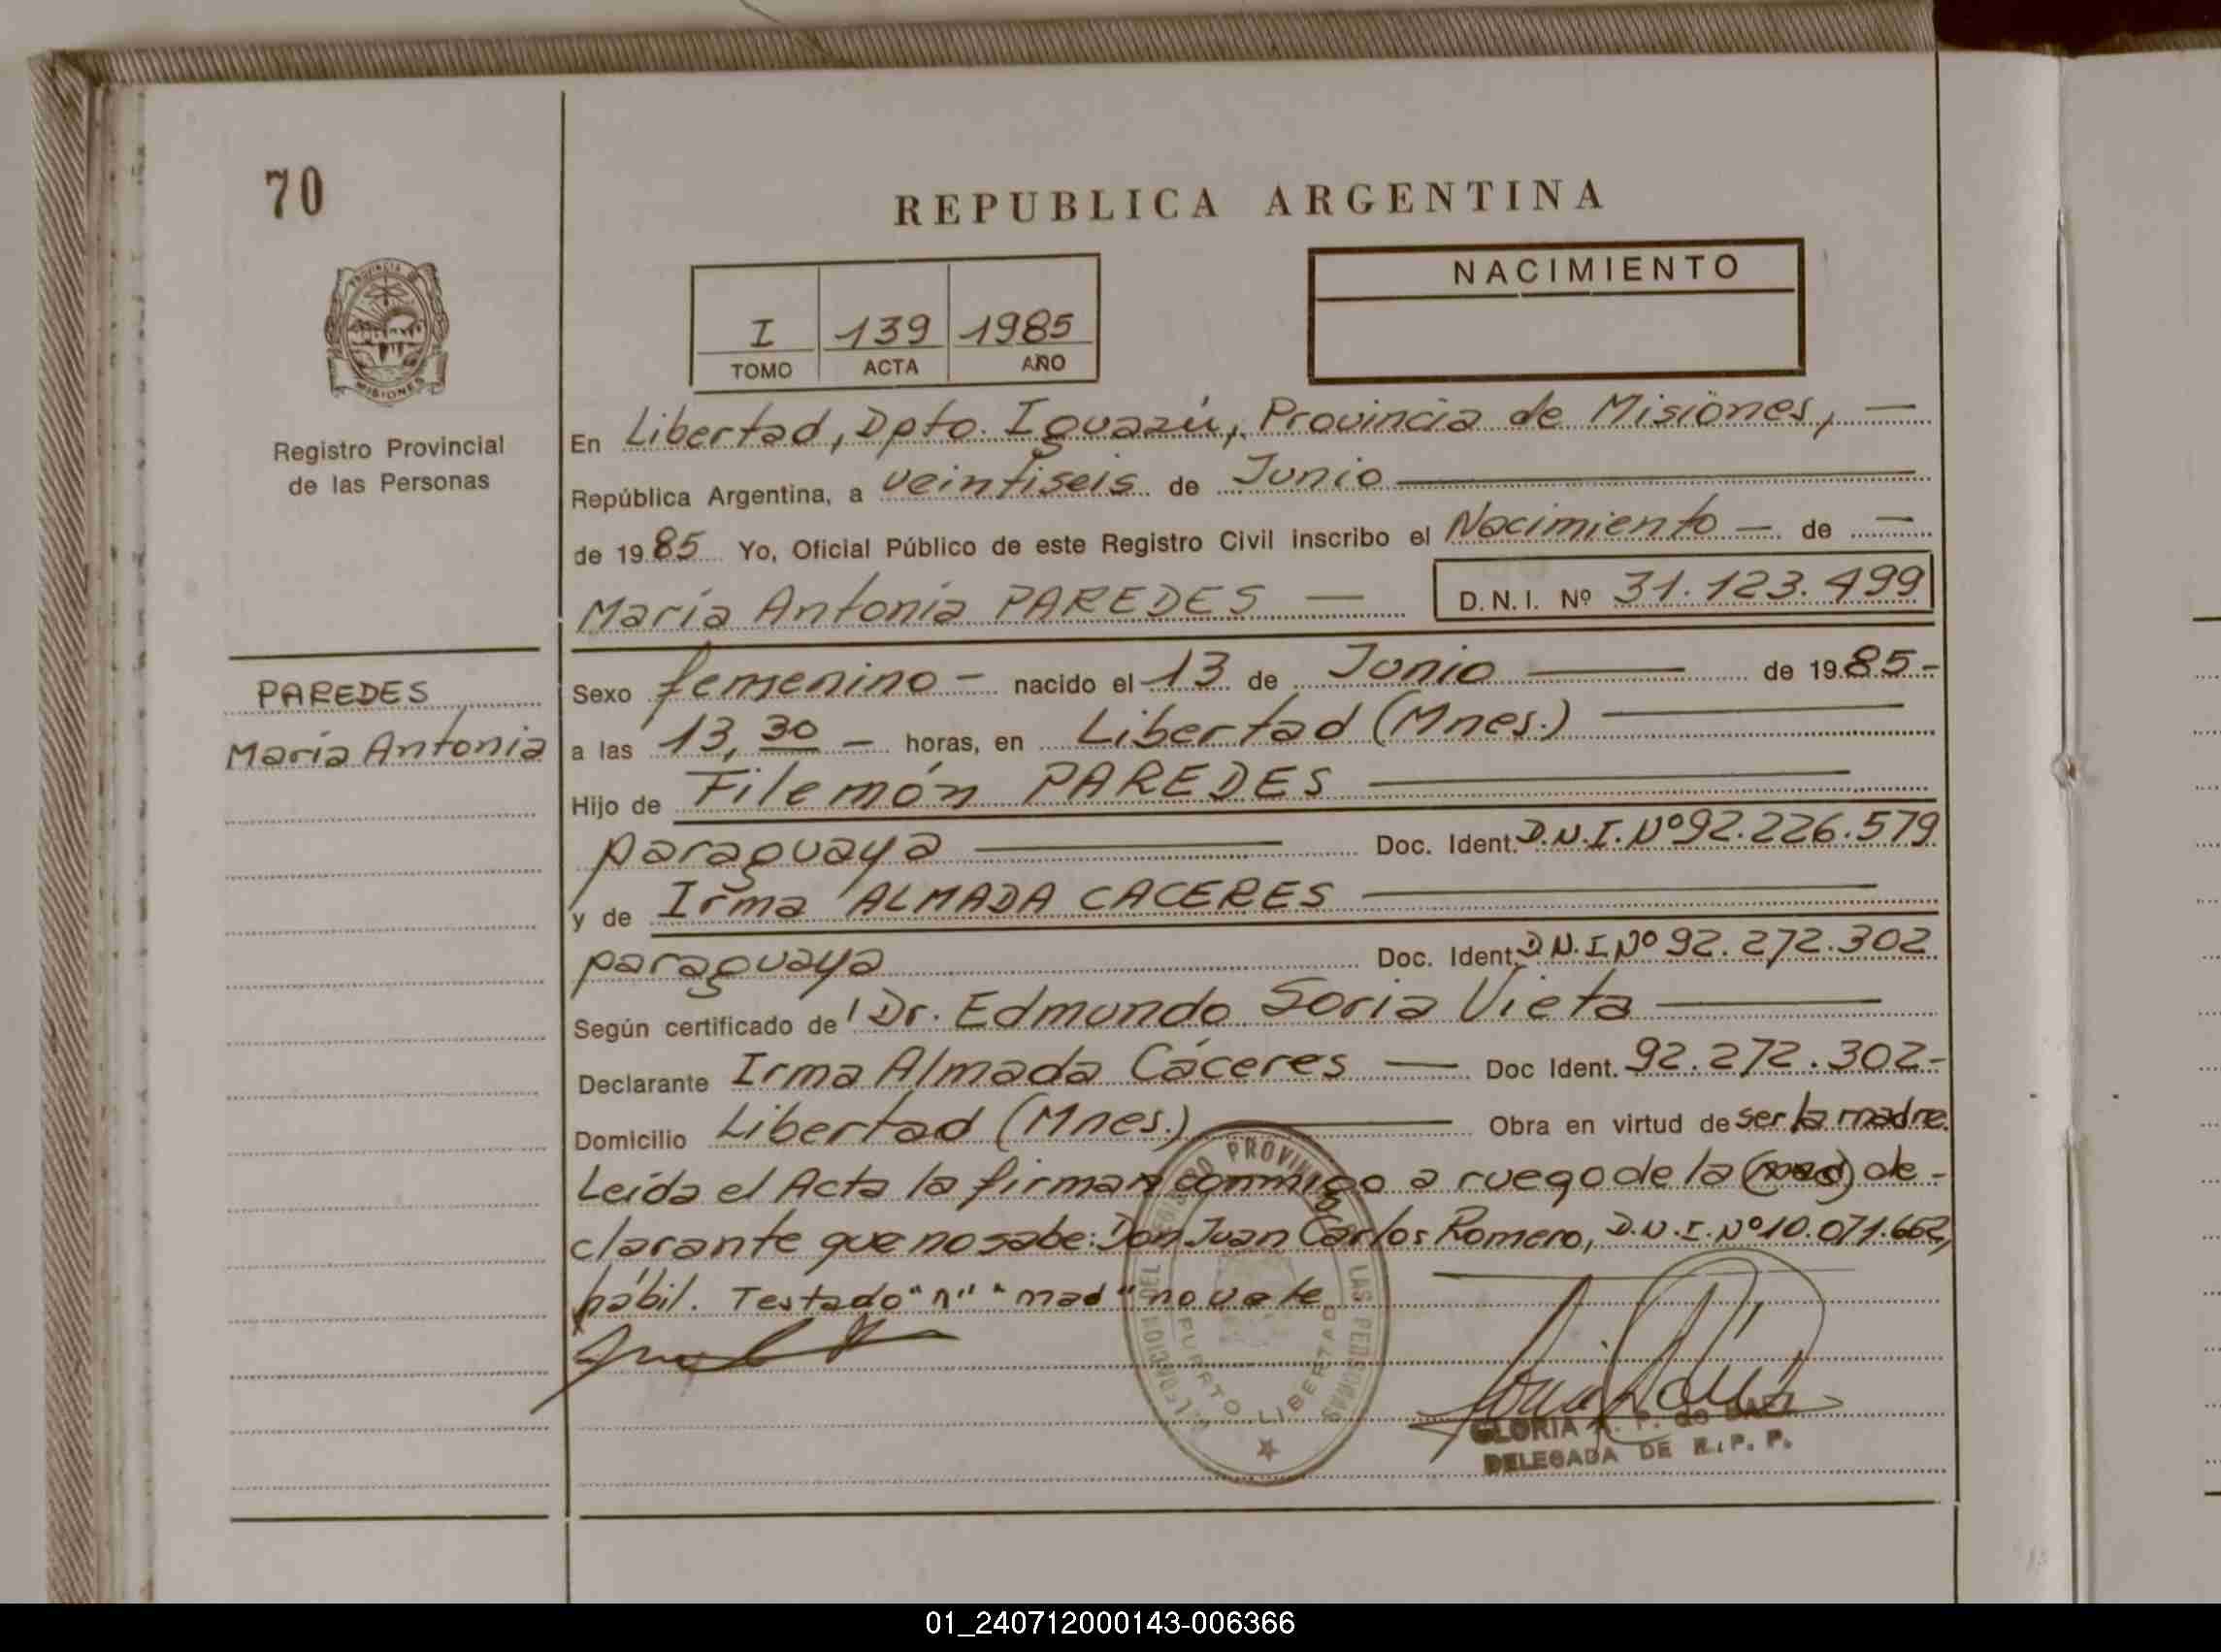 70
REPUBLICA ARGENTINA
NACIMIENTO
I 139 1985
TOMO ACTA AÑO
PROVINCIA DE
MISIONES
Registro Provincial
de las Personas
En Libertad, Dpto. Iguazú, Provincia de Misiones, —
República Argentina, a veintiseis de Junio —
de 1985 Yo, Oficial Público de este Registro Civil inscribo el Nacimiento — de —
María Antonia PAREDES — D.N.I. Nº 31.123.499
PAREDES
María Antonia
Sexo femenino - nacido el 13 de Junio — de 1985.-
a las 13,30 — horas, en Libertad (Mnes.) —
Hijo de Filemón PAREDES —
paraguaya — Doc. Ident. D.N.I. Nº 92.226.579
y de Irma ALMADA CACERES —
paraguaya Doc. Ident. D.N.I Nº 92.272.302
Según certificado de Dr. Edmundo Soria Vieta —
Declarante Irma Almada Cáceres — Doc Ident. 92.272.302-
Domicilio Libertad (Mnes.) — Obra en virtud de ser la madre.
Leída el Acta la firman conmigo a ruego de la (mad) de-
clarante que no sabe: Don Juan Carlos Romero, D.N.I. Nº 10.071.662,
hábil. Testado "n" "mad" no vale
DEL REGISTRO PROVINCIAL DE LAS PERSONAS
PUERTO LIBERTAD
GLORIA P. de
DELEGADA DE R. P. P.
01_240712000143-006366